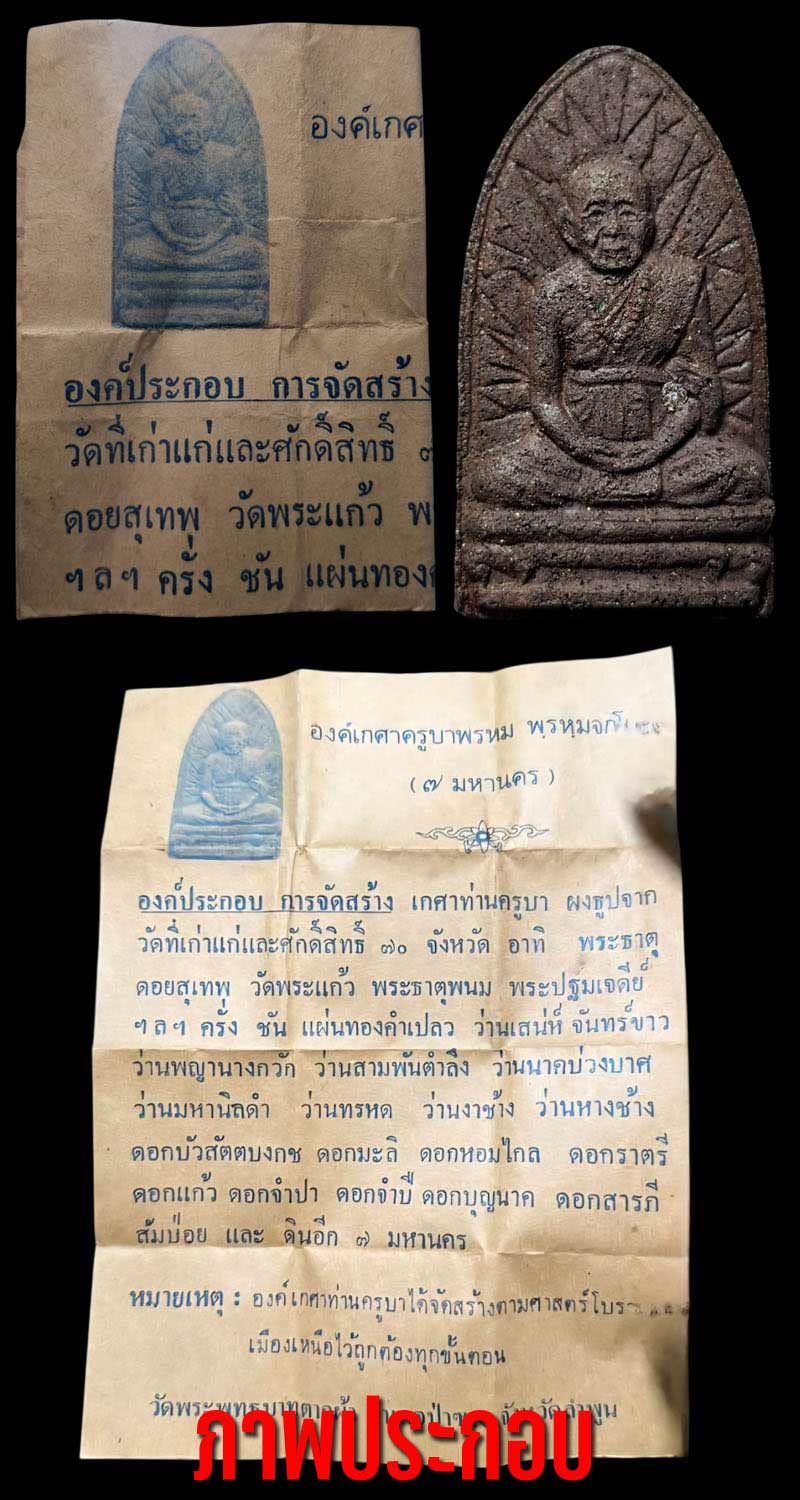 องค์เกศ
องค์ประกอบ การจัดสร้าง
วัดที่เก่าแก่และศักดิ์สิทธิ์ ๗
ดอยสุเทพ วัดพระแก้ว พ
ฯลฯ ครั่ง ชัน แผ่นทองค
องค์เกศาครูบาพรหม พฺรหฺมจกฺโก
(๗ มหานคร)
องค์ประกอบ การจัดสร้าง เกศาท่านครูบา ผงธูปจาก
วัดที่เก่าแก่และศักดิ์สิทธิ์ ๗๐ จังหวัด อาทิ พระธาตุ
ดอยสุเทพ วัดพระแก้ว พระธาตุพนม พระปฐมเจดีย์
ฯลฯ ครั่ง ชัน แผ่นทองคำเปลว ว่านเสน่ห์จันทร์ขาว
ว่านพญานางกวัก ว่านสามพันตำลึง ว่านนาคบ่วงบาศ
ว่านมหานิลดำ ว่านทรหด ว่านงาช้าง ว่านหางช้าง
ดอกบัวสัตตบงกช ดอกมะลิ ดอกหอมไกล ดอกราตรี
ดอกแก้ว ดอกจำปา ดอกจำปี ดอกบุญนาค ดอกสารภี
ส้มป่อย และ ดินอีก ๗ มหานคร
หมายเหตุ : องค์เกศาท่านครูบาได้จัดสร้างตามศาสตร์
เมืองเหนือไว้ถูกต้องทุกขั้นตอน
วัดพระพุทธบาทตากผ้า จังหวัดลำพูน
ภาพประกอบ